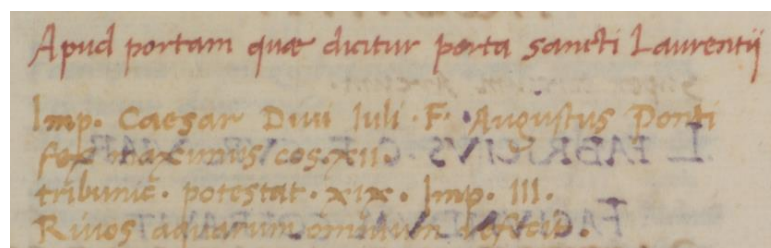 Apud portam quæ dicitur porta sancti Laurentii
Imp. Caesar Divi Iuli · F · Augustus Ponti
fex maximus cos · xii ·
tribunic · potestat · xix · Imp. III.
Rivos aquarum omnium refecit .